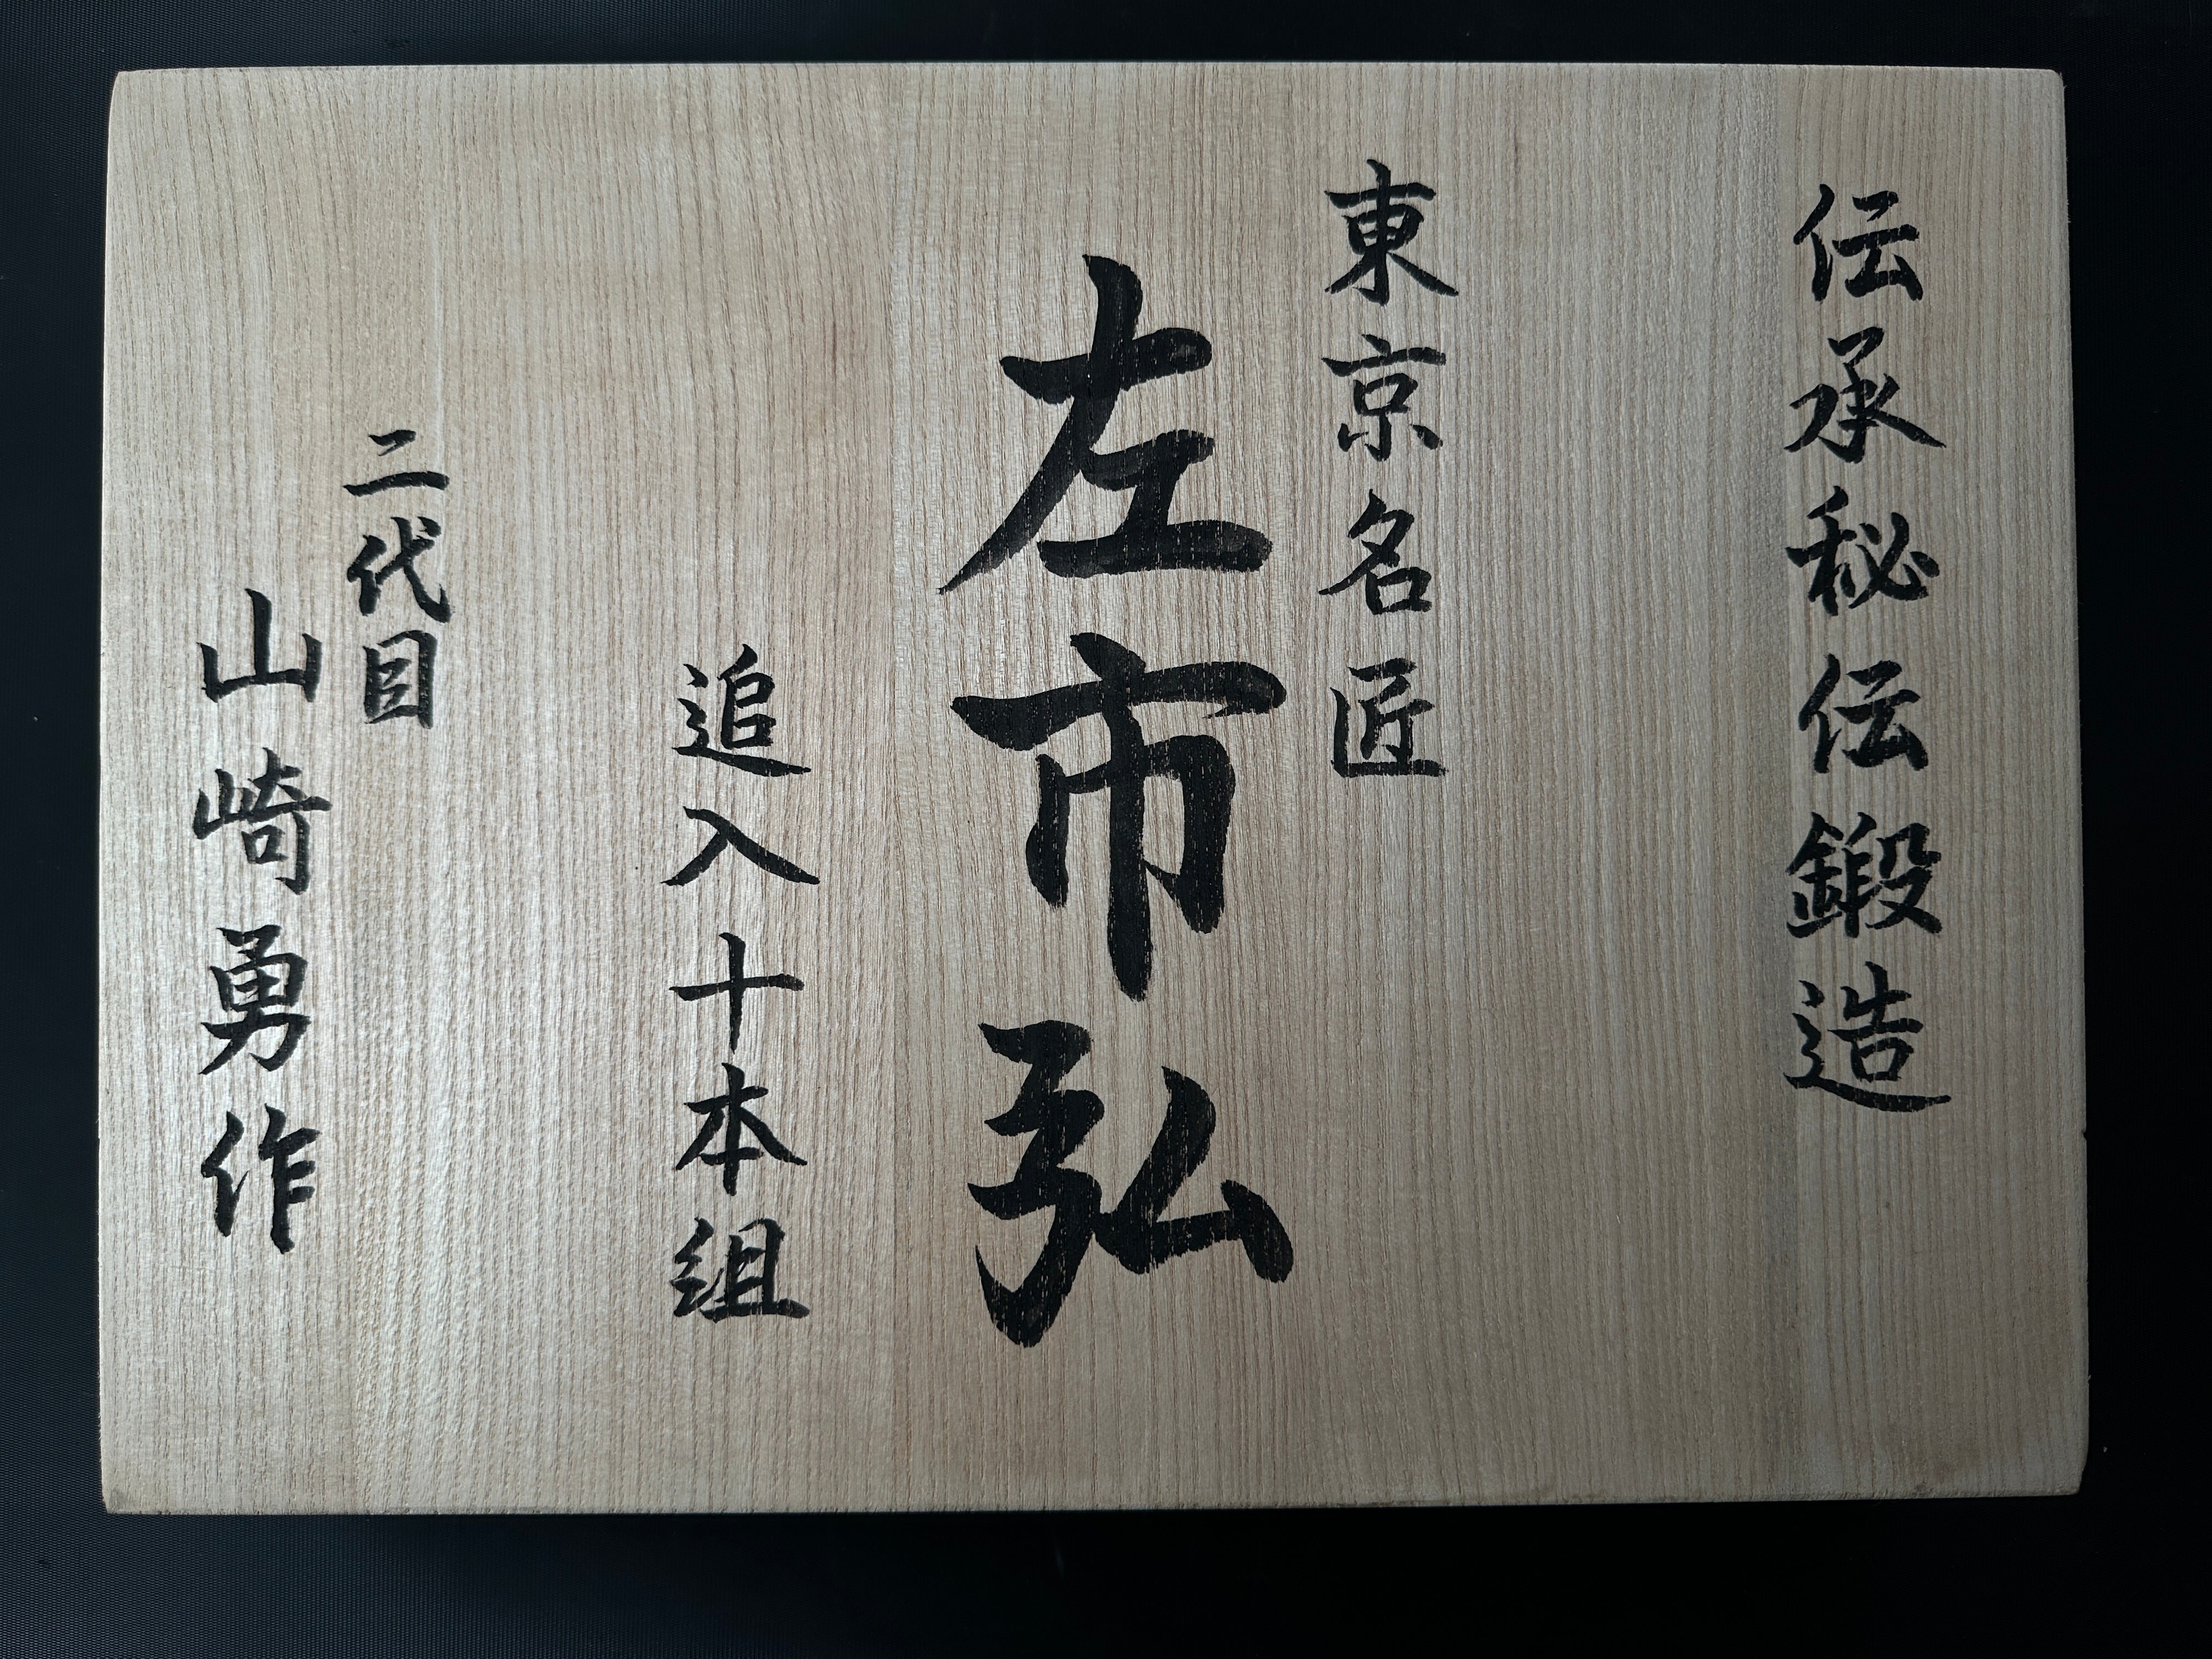 伝承秘伝鍛造
東京名匠
左市弘
追入十本組
二代目
山崎勇作